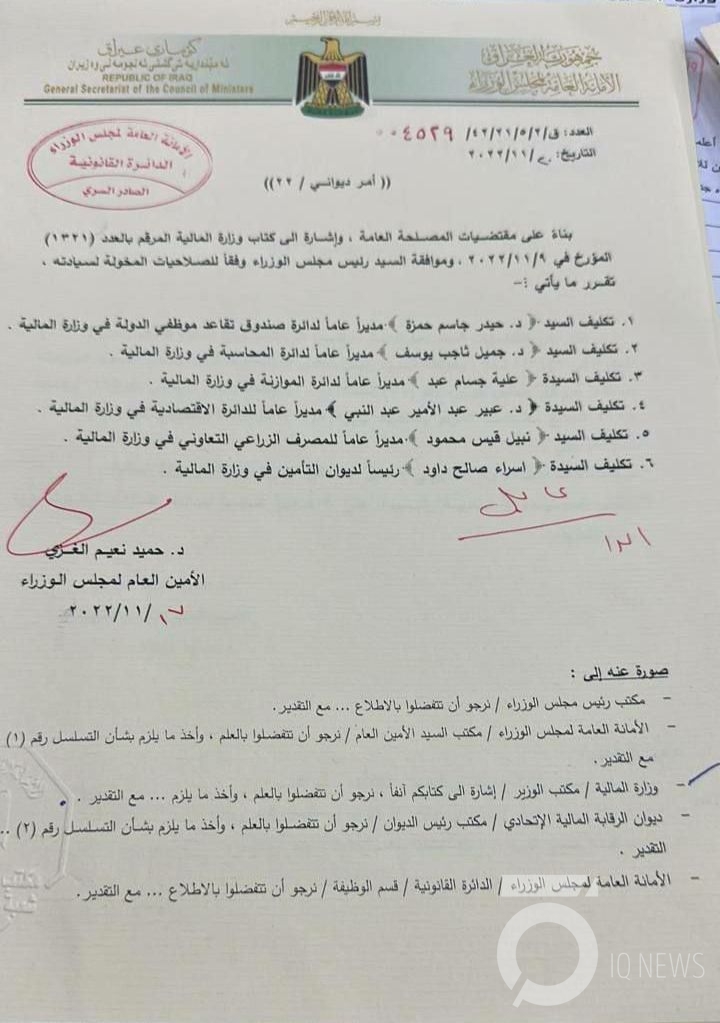 بسم الله الرحمن الرحيم
كۆماری عێراق
REPUBLIC OF IRAQ
General Secretariat of the Council of Ministers
جمهورية العراق
الأمانة العامة لمجلس الوزراء
الأمانة العامة لمجلس الوزراء
الدائرة القانونية
الصادر السري
العدد: ق/٤٢/٢١/٥/٢/ ٠٠٤٥٢٩
التاريخ: ٢٠٢٢/١١/
(( أمر ديواني / ٢٢))
بناءً على مقتضيات المصلحة العامة ، وإشارة الى كتاب وزارة المالية المرقم بالعدد (١٣٢١)
المؤرخ في ٢٠٢٢/١١/٩ ، وموافقة السيد رئيس مجلس الوزراء وفقاً للصلاحيات المخولة لسيادته ،
تقرر ما يأتي :-
١. تكليف السيد { د. حيدر جاسم حمزة } مديراً عاماً لدائرة صندوق تقاعد موظفي الدولة في وزارة المالية .
٢. تكليف السيد { د. جميل ثاجب يوسف } مديراً عاماً لدائرة المحاسبة في وزارة المالية .
٣. تكليف السيدة { علية جسام عبد } مديراً عاماً لدائرة الموازنة في وزارة المالية .
٤. تكليف السيدة { د. عبير عبد الأمير عبد النبي } مديراً عاماً للدائرة الاقتصادية في وزارة المالية .
٥. تكليف السيد { نبيل قيس محمود } مديراً عاماً للمصرف الزراعي التعاوني في وزارة المالية .
٦. تكليف السيدة { اسراء صالح داود } رئيساً لديوان التأمين في وزارة المالية .
د. حميد نعيم الغزي
الأمين العام لمجلس الوزراء
٢٠٢٢/١١/١٧
صورة عنه إلى :
- مكتب رئيس مجلس الوزراء / نرجو أن تتفضلوا بالاطلاع ... مع التقدير.
- الأمانة العامة لمجلس الوزراء / مكتب السيد الأمين العام / نرجو أن تتفضلوا بالعلم ، وأخذ ما يلزم بشأن التسلسل رقم (١)
مع التقدير .
- وزارة المالية / مكتب الوزير / إشارة الى كتابكم آنفاً ، نرجو أن تتفضلوا بالعلم ، وأخذ ما يلزم ... مع التقدير .
- ديوان الرقابة المالية الإتحادي / مكتب رئيس الديوان / نرجو أن تتفضلوا بالعلم ، وأخذ ما يلزم بشأن التسلسل رقم (٢) ..
التقدير .
- الأمانة العامة لمجلس الوزراء / الدائرة القانونية / قسم الوظيفة / نرجو أن تتفضلوا بالاطلاع ... مع التقدير.
IQ NEWS